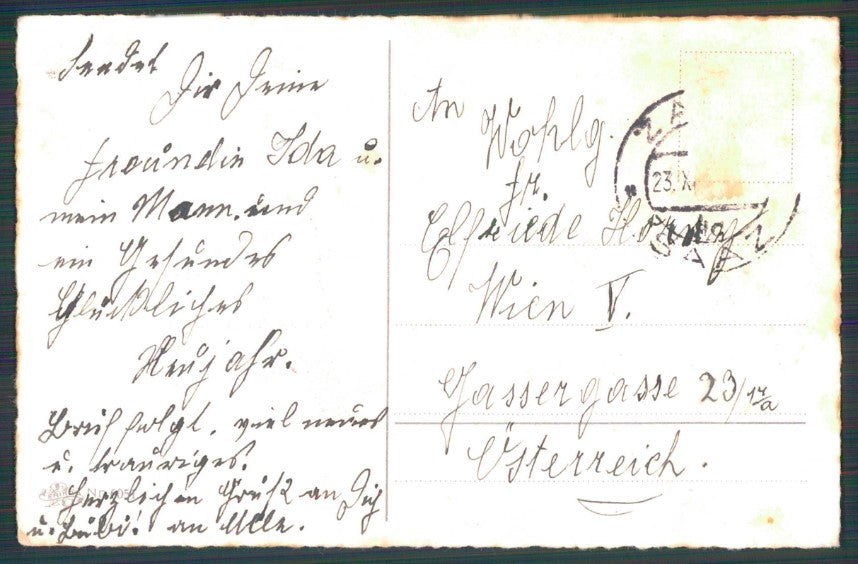 Sendet
Dir Deine
freundin Ida u.
mein Mann. und
ein Gesundes
Glückliches
Neujahr.
Brief folgt. viel neues
u. trauriges.
Herzlichen Gruß an Dich
u. Bubi! an Alle.
An
Wohlg.
Fr.
Elfriede
Wien V.
Gassergasse 23/17a
Österreich.
23. X